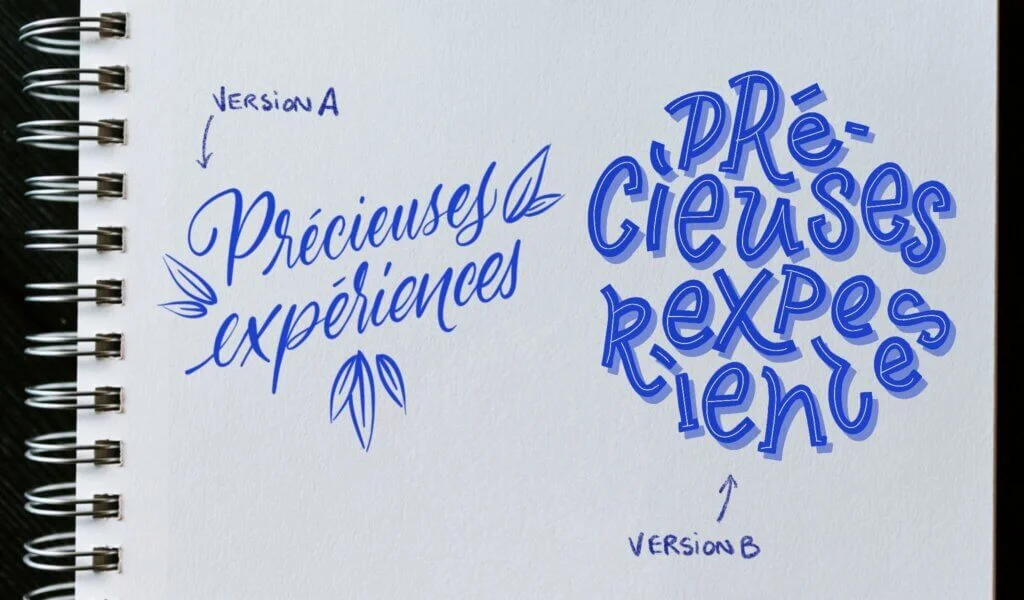 VERSION A
Précieuses
expériences
PRé-
Cieuses
exPe
Riences
VERSION B